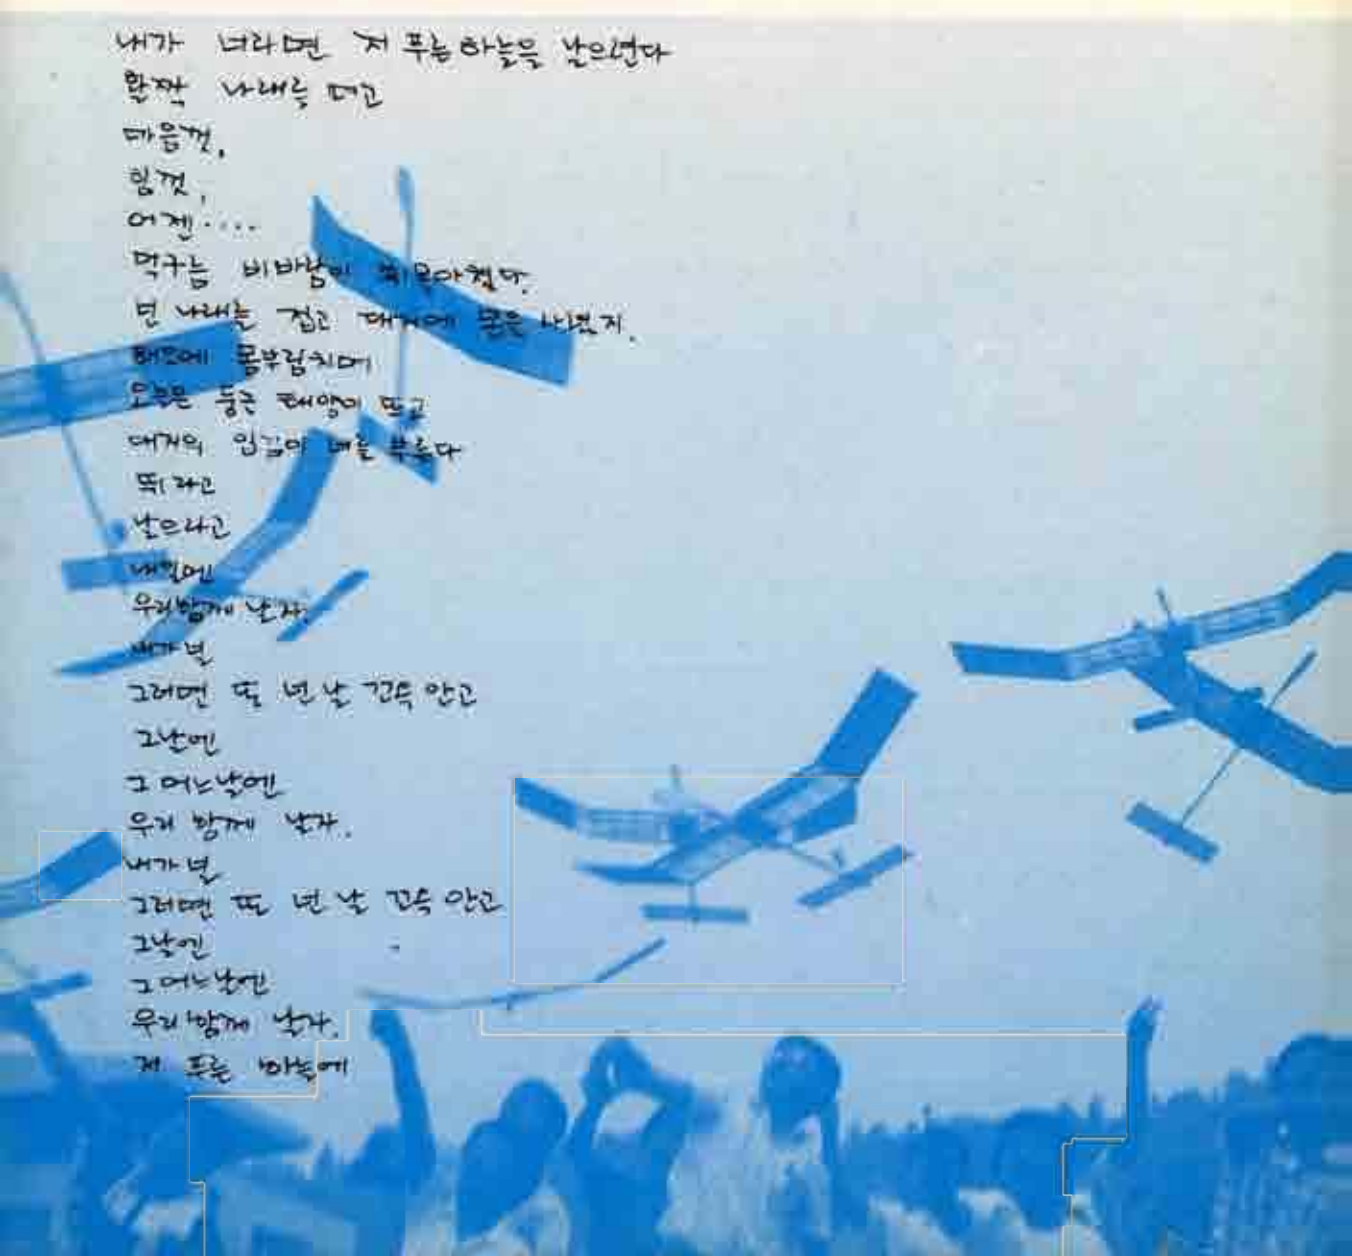 내가 너라면 저 푸른하늘을 날으련다
활짝 나래를 펴고
마음껏,
힘껏,
어젠....
먹구름 비바람이 휘몰아쳤다.
넌 나래를 접고 대지에 몸을 나렸지.
몸부림치며
오늘은 둥근 태양이 뜨고
대지의 입김이 너를 부른다
뛰라고
날으라고
내일엔
우리함께 날자.
내가 널
그러면 또 넌 날 꼬옥 안고
그날엔
그 어느날엔
우리 함께 날자.
내가 널
그러면 또 넌 날 꼬옥 안고
그날엔
그 어느날엔
우리 함께 날자.
저 푸른 하늘에